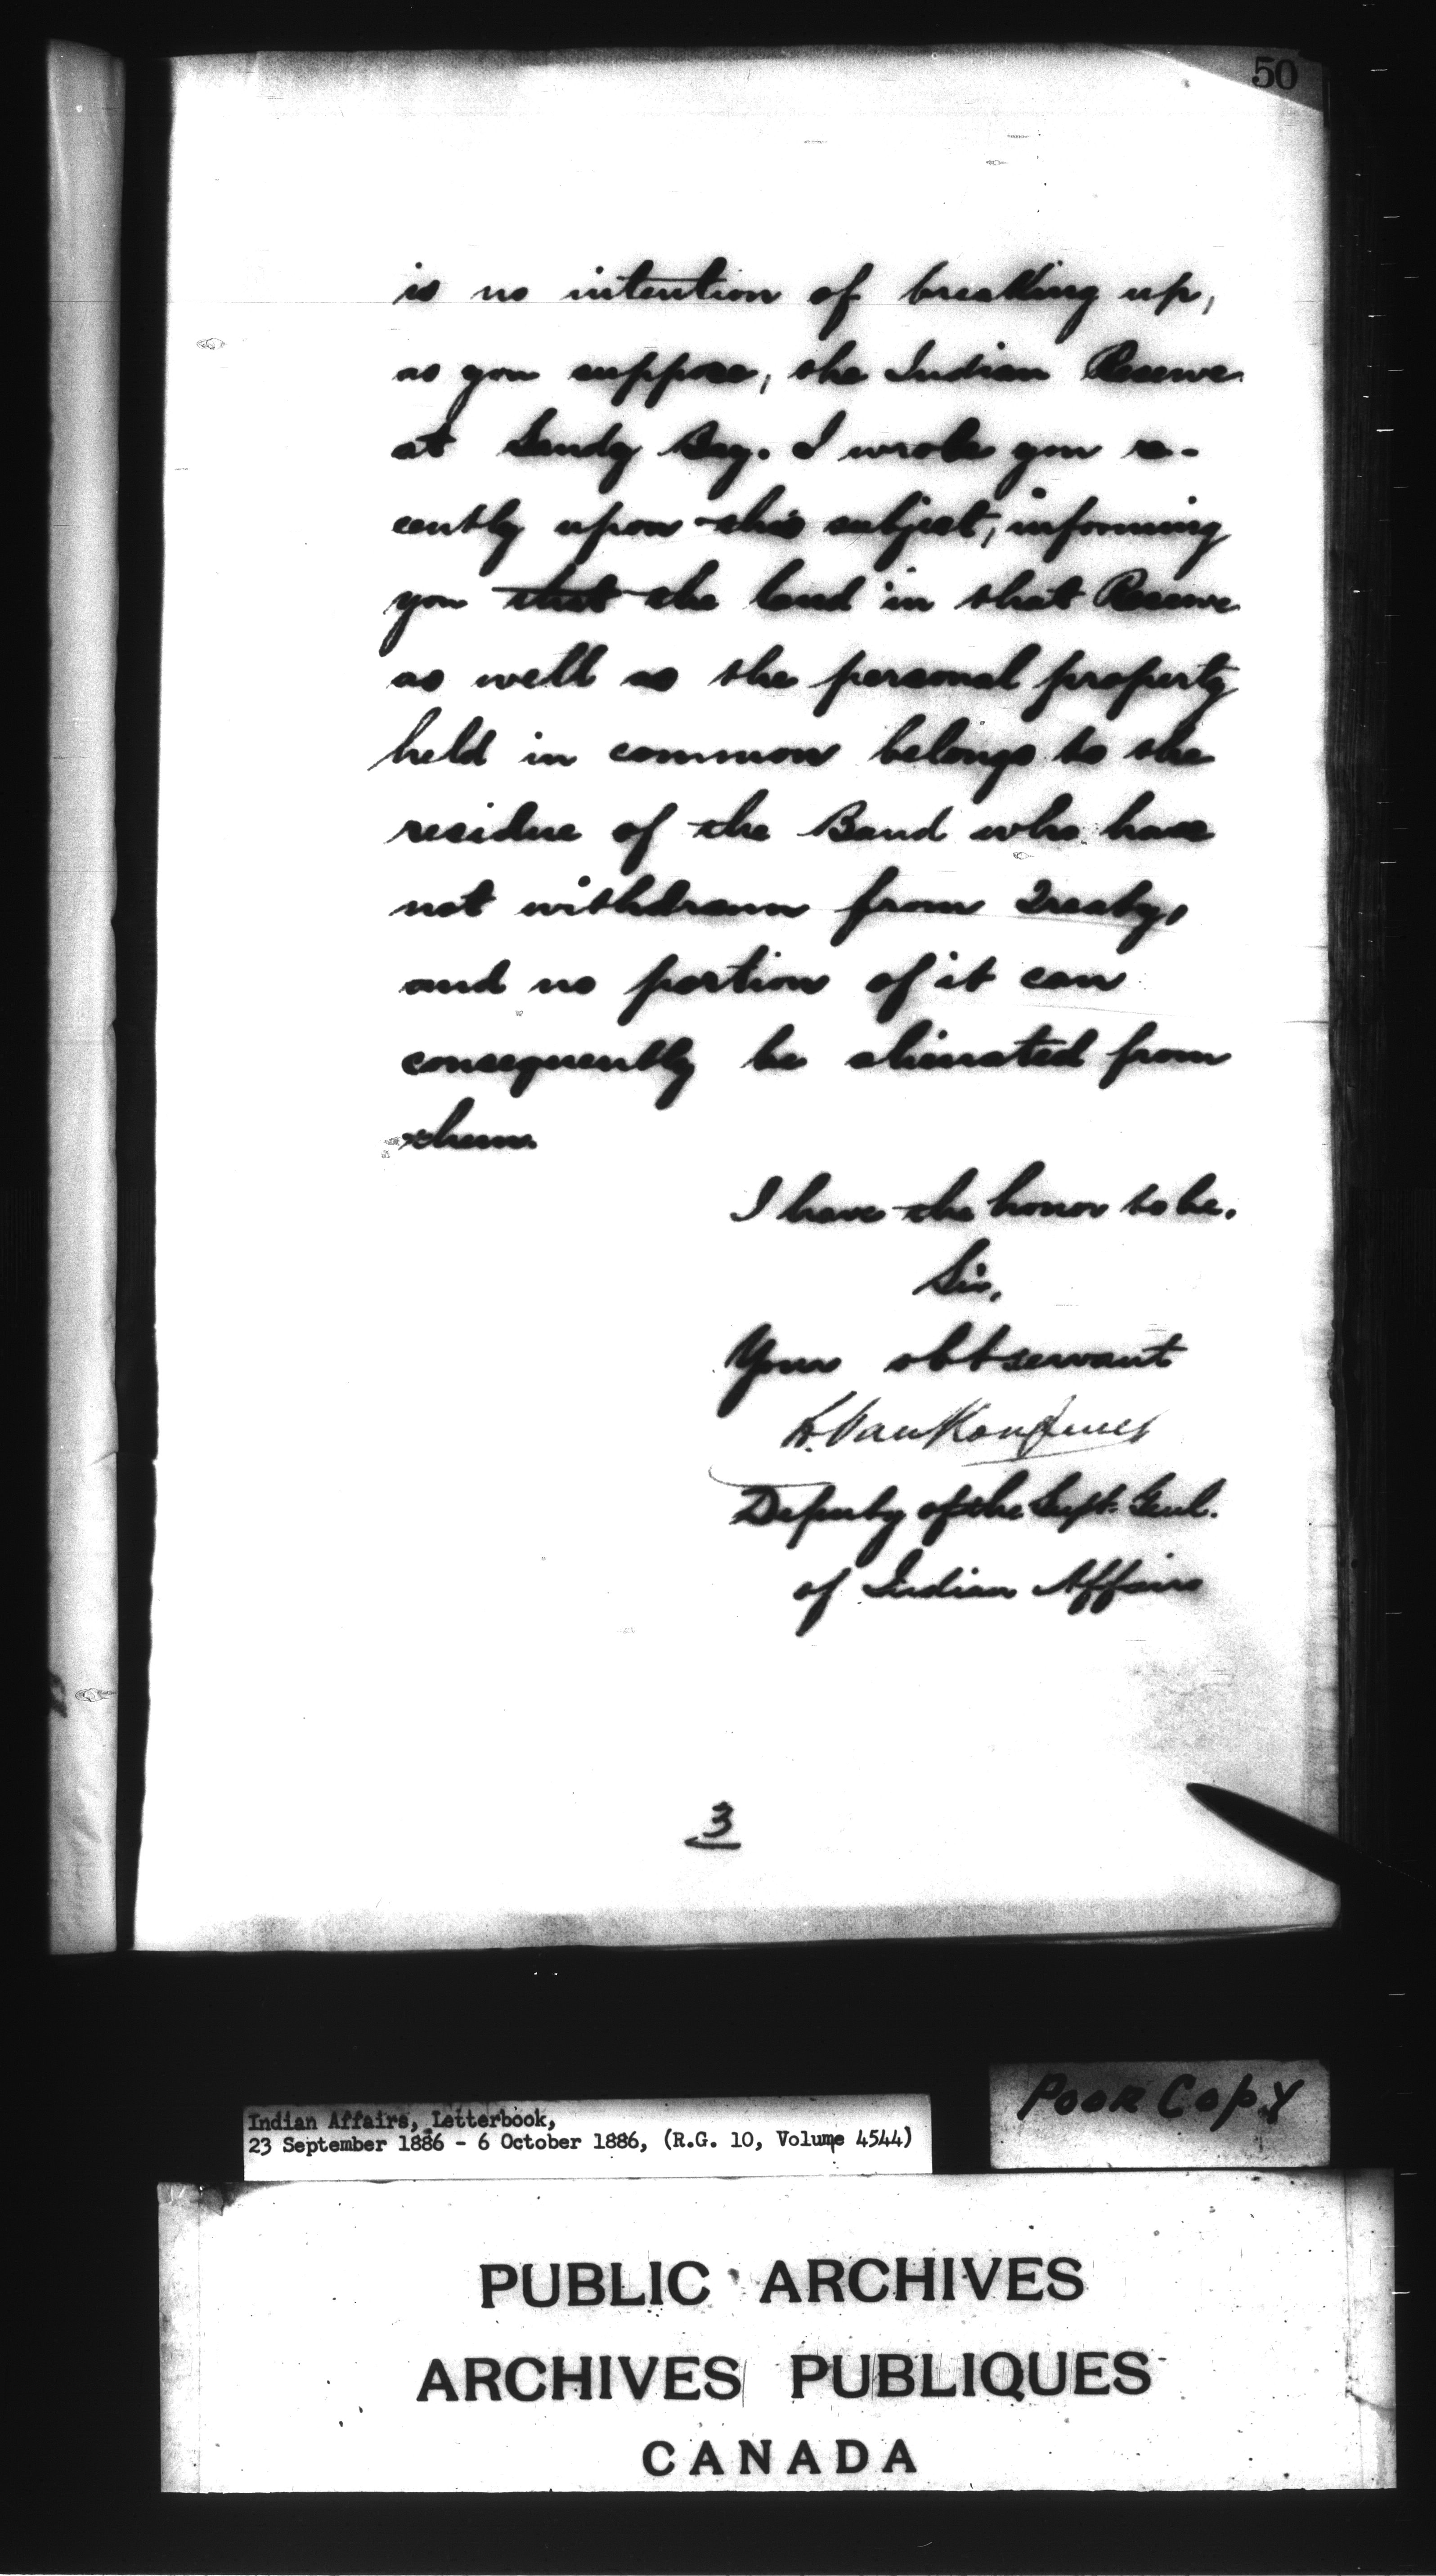 50
is no intention of breaking up,
as you suppose, the Indian Reserve
at Sandy Bay. I wrote you re-
cently upon this subject, informing
you that the land in that Reserve
as well as the personal property
held in common belongs to the
residue of the Band who have
not withdrawn from Treaty,
and no portion of it can
consequently be alienated from
them.
I have the honor to be.
Sir,
Your obt servant
L. VanKoughnet
Deputy of the Supt. Genl.
of Indian Affairs
3
Indian Affairs, Letterbook,
23 September 1886 - 6 October 1886, (R.G. 10, Volume 4544)
Poor Copy
PUBLIC ARCHIVES
ARCHIVES PUBLIQUES
CANADA